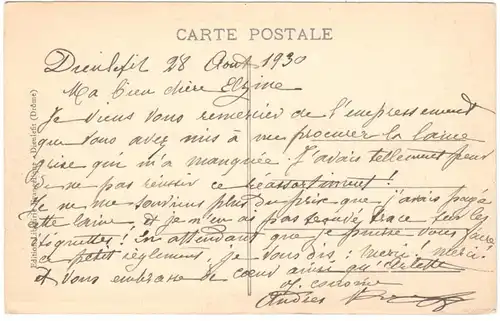 CARTE POSTALE
Dieulefit 28 Août 1930
Ma bien chère Elzine
Je viens vous remercier de l'empressement
que vous avez mis à me procurer la laine
grise qui m'a manquée. J'avais tellement peur
de ne pas réussir ce réassortiment!
Je ne me souviens plus du prix que j'avais payé
cette laine et je n'en ai pas trouvé trace sur les
étiquettes! En attendant que je puisse vous faire
ce petit règlement, je vous dis: merci! merci!
et vous embrasse de cœur ainsi qu'Arlette
Andrée
Dieulefit (Drôme)